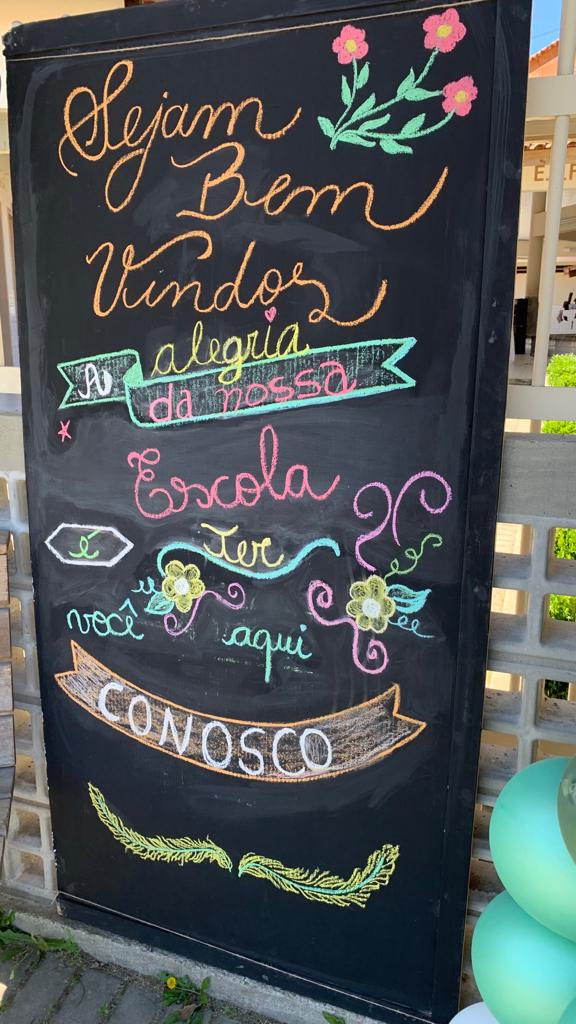 Sejam
Bem
Vindos
A alegria
da nossa
Escola
é ter
você aqui
CONOSCO